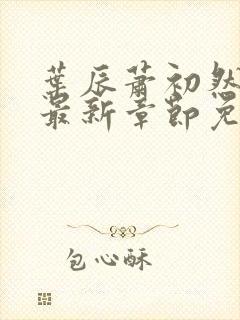 葉辰蕭初然
最新章節免
包心酥